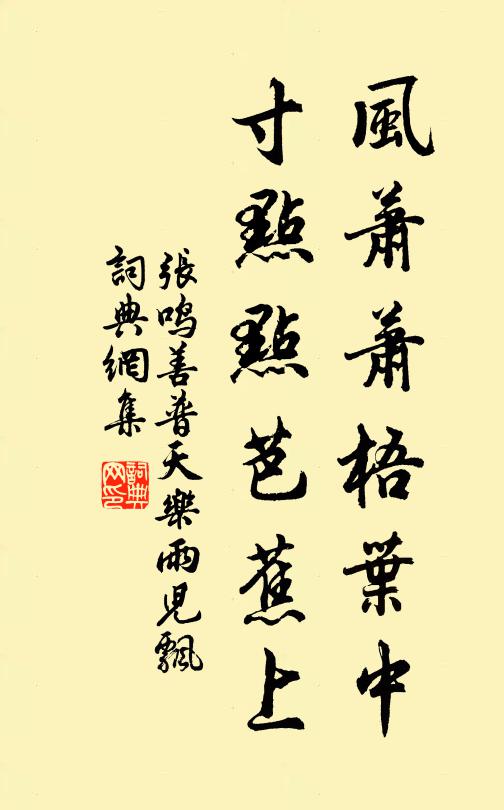 風蕭蕭梧葉中
寸點點芭蕉上
張鳴善普天樂雨兒飄
詞典網集
詞典
网印